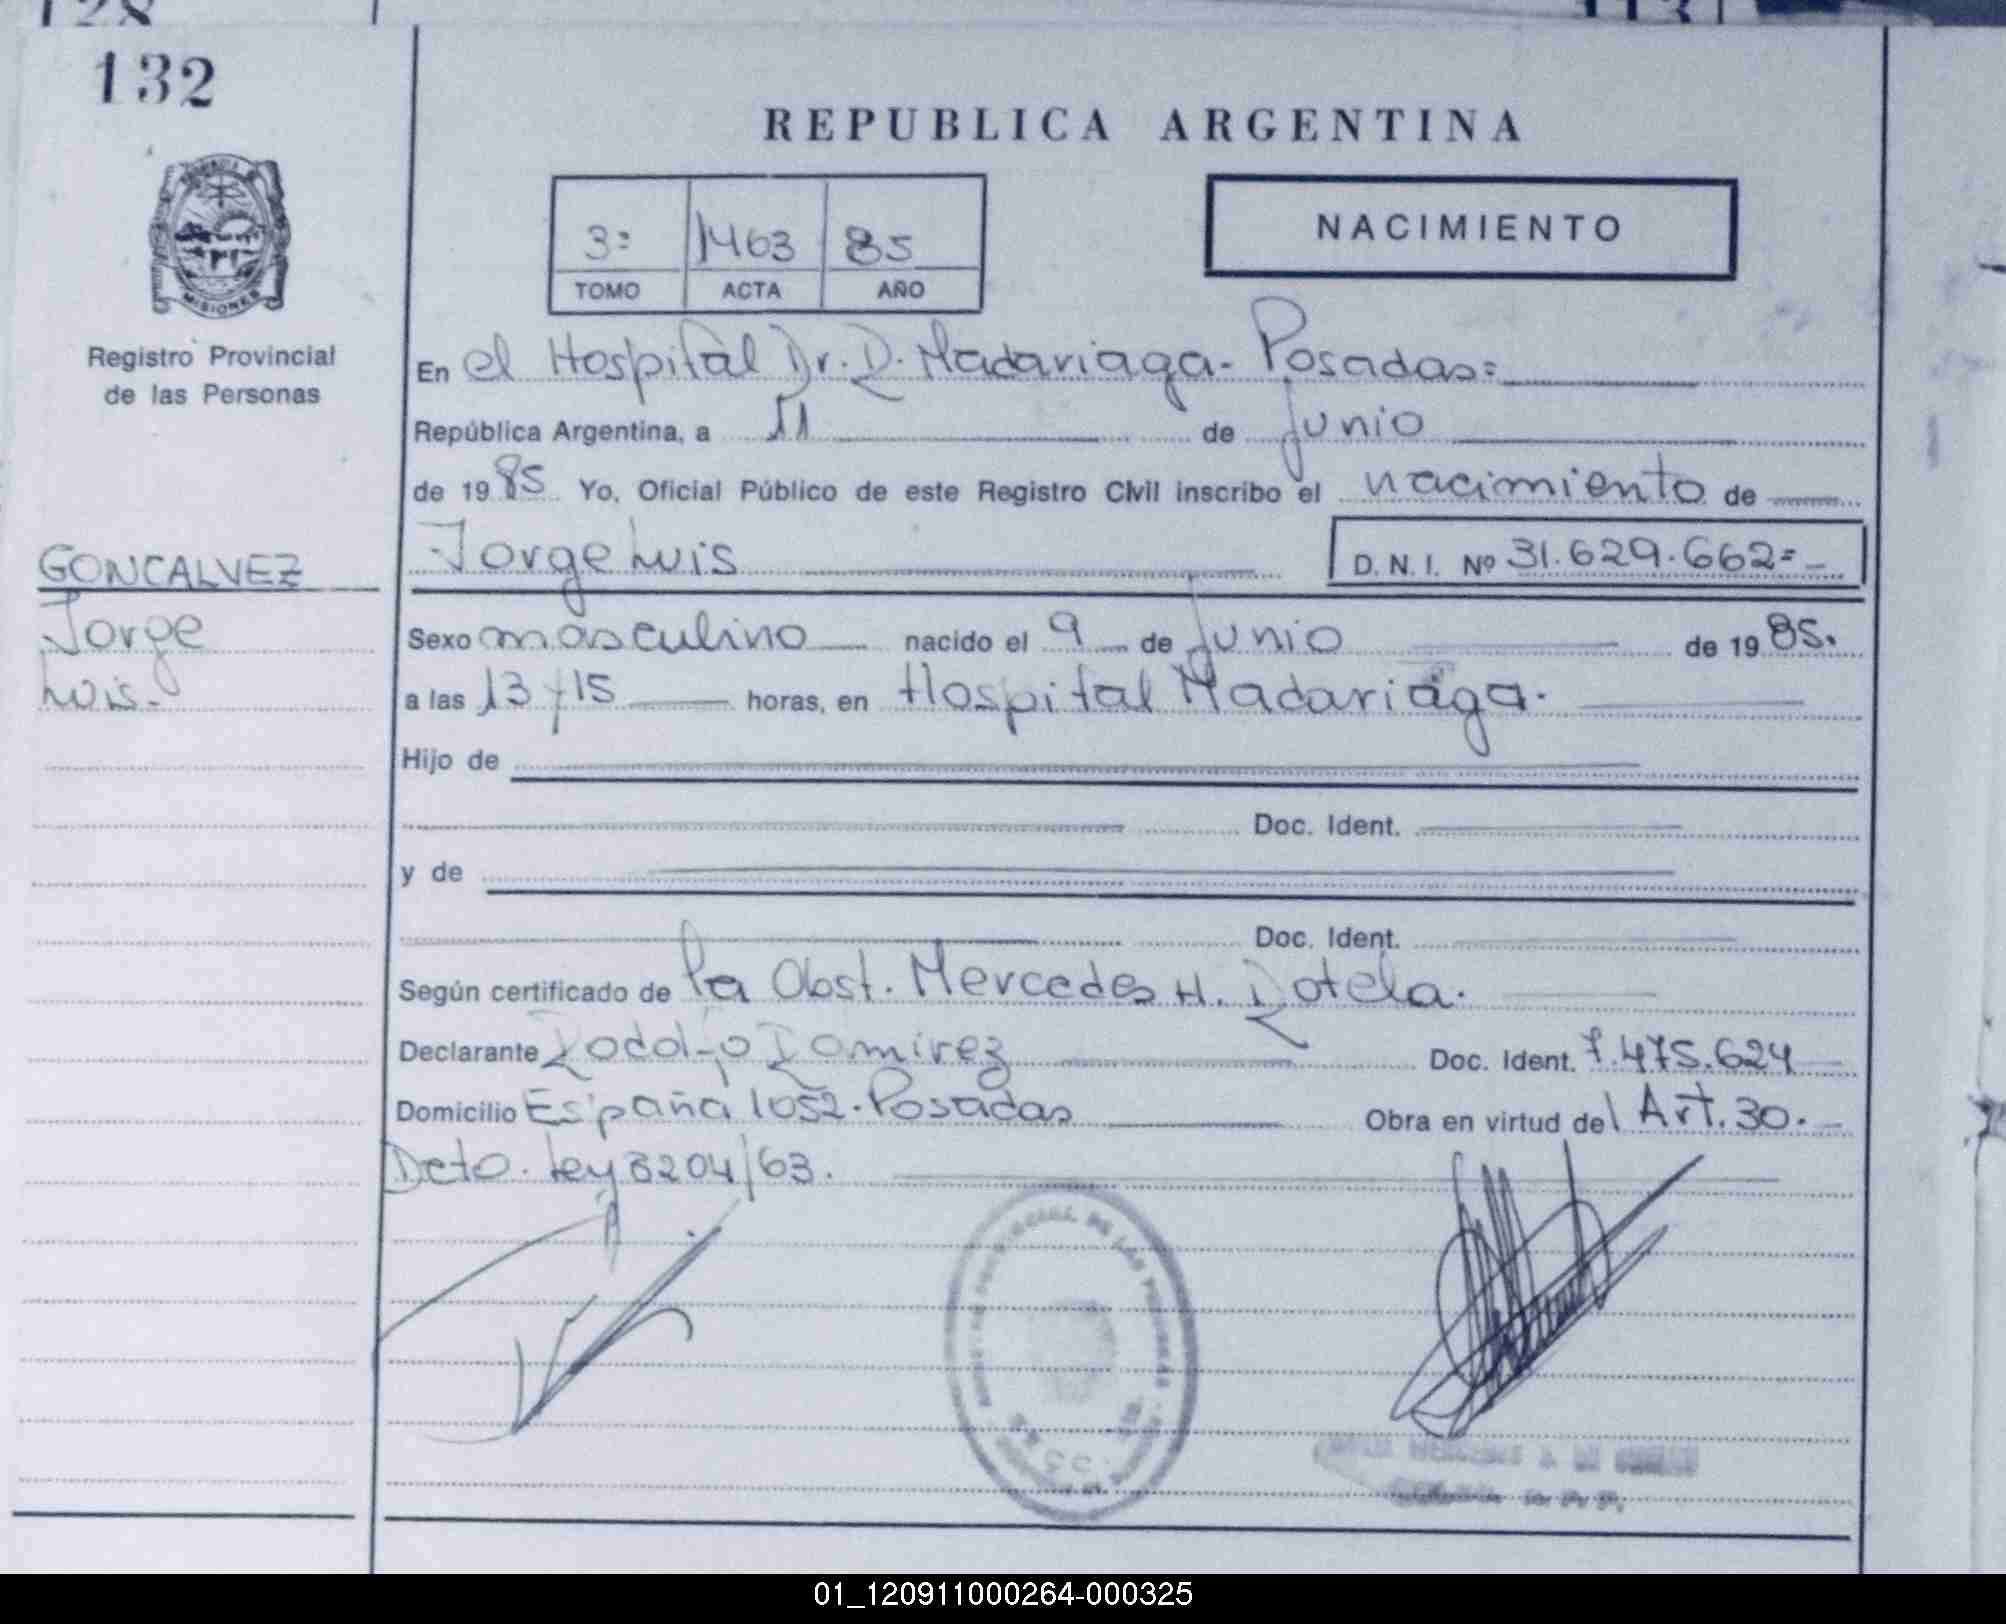 132
REPUBLICA ARGENTINA
MISIONES
Registro Provincial
de las Personas
3= 1463 85
TOMO ACTA AÑO
NACIMIENTO
En el Hospital Dr. R. Madariaga- Posadas=
República Argentina, a 11 de Junio
de 1985 Yo, Oficial Público de este Registro Civil inscribo el nacimiento de
GONCALVEZ
Jorge
Luis.-
Jorge Luis D.N.I. Nº 31.629.662=-
Sexo masculino nacido el 9 de Junio de 1985.
a las 13 y 15 horas, en Hospital Madariaga.
Hijo de
Doc. Ident.
y de
Doc. Ident.
Según certificado de la Obst. Mercedes H. Rotela.
Declarante Rodolfo Ramirez Doc. Ident. 7.475.624
Domicilio España 1052.Posadas Obra en virtud del Art.30.-
Dcto. Ley 8204/63.
01_120911000264-000325